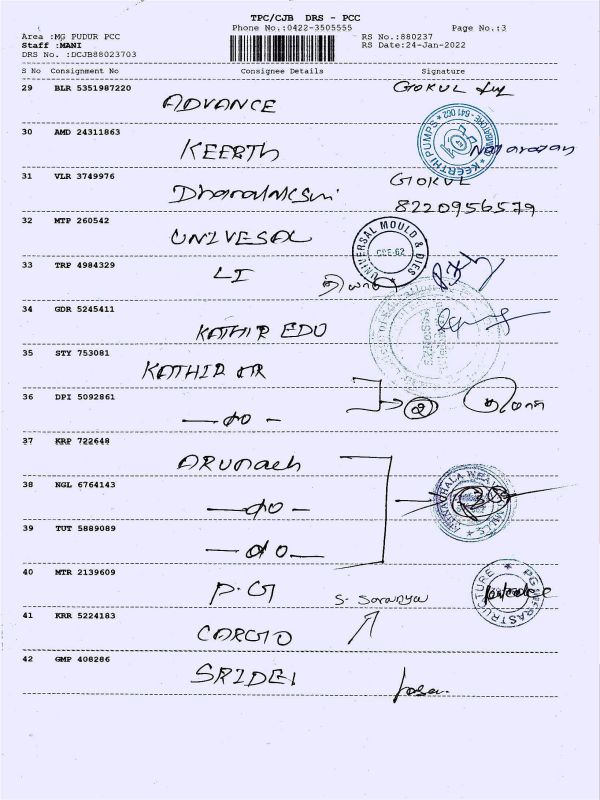 TPC/CJB DRS - PCC
Phone No.:0422-3505555 Page No.:3
Area :MG PUDUR PCC RS No.:880237
Staff :MANI RS Date:24-Jan-2022
DRS No. :DCJB88023703
S No Consignment No Consignee Details Signature
29 BLR 5351987220 ADVANCE GOKUL
30 AMD 24311863 KEERTH
KEERTHI PUMPS
31 VLR 3749976 GOKUL
8220956579
32 MTP 260542 UNIVESAL
UNIVERSAL MOULD & DIES
CBE-62
33 TRP 4984329 LI
34 GDR 5245411 KATHIR EDU
35 STY 753081 KATHIR
36 DPI 5092861 -do-
37 KRP 722648 ARUNACH
38 NGL 6764143 -do-
39 TUT 5889089 -do-
40 MTR 2139609 P.G S. Saranya
PG INFRASTRUCTURE
41 KRR 5224183 CARGO
42 GMP 408286 SRIDEI